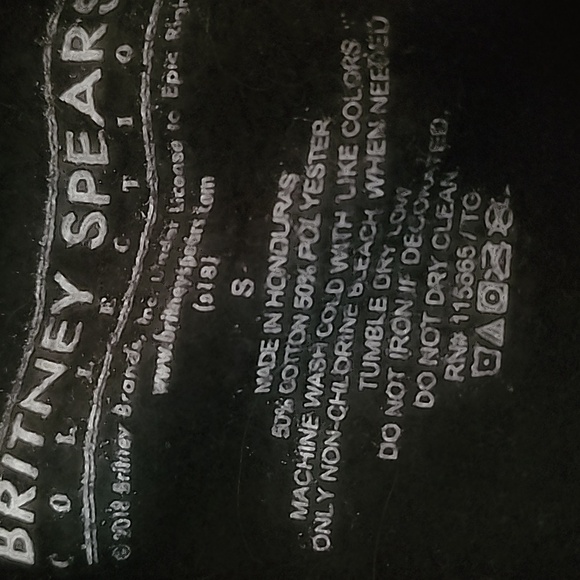 BRITNEY SPEARS
COLLECTION
© 2018 Britney Brands, Inc. Under License to Epic
www.britneyspears.com
(s18)
S
MADE IN HONDURAS
50% COTTON 50% POLYESTER
MACHINE WASH COLD WITH LIKE COLORS
ONLY NON-CHLORINE BLEACH WHEN NEEDED
TUMBLE DRY LOW
DO NOT IRON IF DECORATED.
DO NOT DRY CLEAN
RN# 115365 / TG